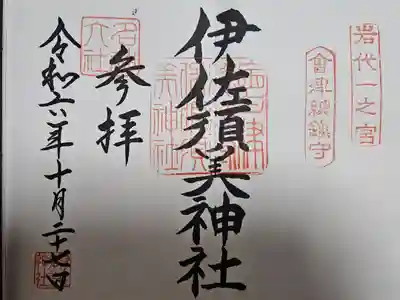 岩代一之宮
會津総鎮守
伊佐須美神社
参拝
名神大社
令和六年十月二十七日